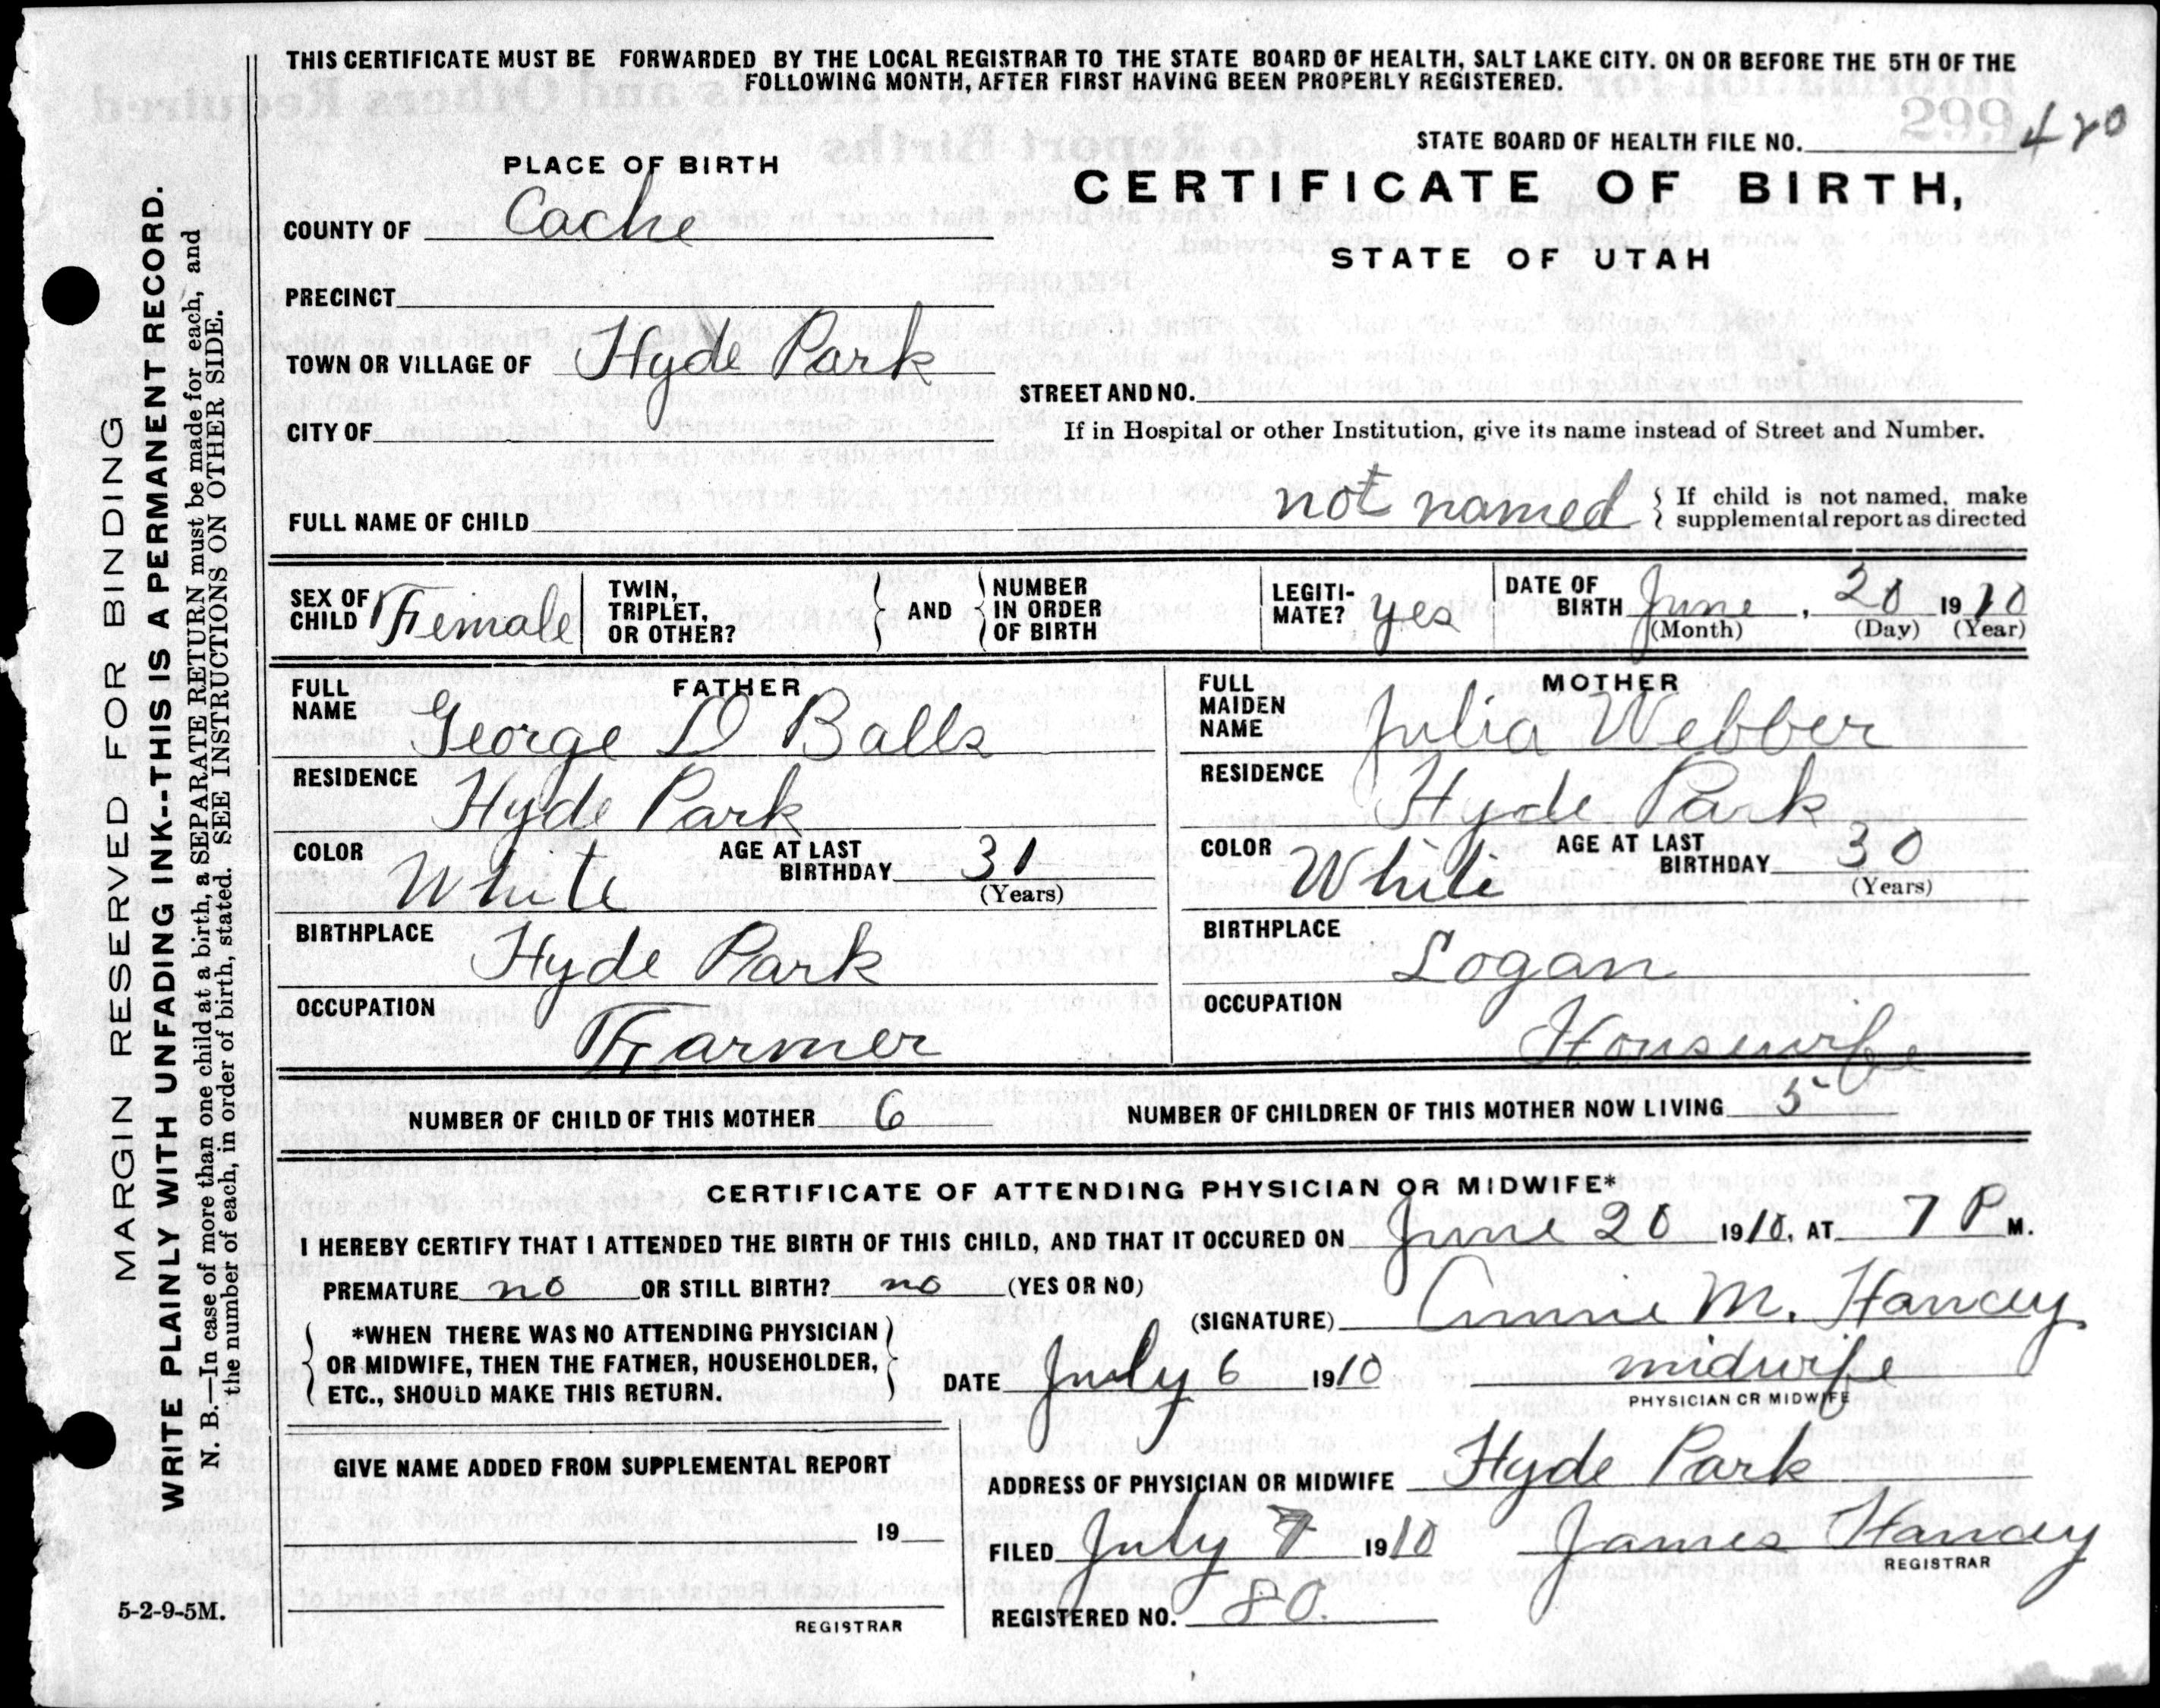 THIS CERTIFICATE MUST BE FORWARDED BY THE LOCAL REGISTRAR TO THE STATE BOARD OF HEALTH, SALT LAKE CITY. ON OR BEFORE THE 5TH OF THE
FOLLOWING MONTH, AFTER FIRST HAVING BEEN PROPERLY REGISTERED.
STATE BOARD OF HEALTH FILE NO. 420
PLACE OF BIRTH
CERTIFICATE OF BIRTH,
STATE OF UTAH
COUNTY OF Cache
PRECINCT
TOWN OR VILLAGE OF Hyde Park
STREET AND NO.
CITY OF
If in Hospital or other Institution, give its name instead of Street and Number.
FULL NAME OF CHILD not named
If child is not named, make
supplemental report as directed
SEX OF CHILD Female
TWIN, TRIPLET, OR OTHER? AND NUMBER IN ORDER OF BIRTH
LEGITI-MATE? yes
DATE OF BIRTH June, 20 1910
(Month) (Day) (Year)
FATHER
FULL NAME George D Balls
RESIDENCE Hyde Park
COLOR White AGE AT LAST BIRTHDAY 31
(Years)
BIRTHPLACE Hyde Park
OCCUPATION Farmer
MOTHER
FULL MAIDEN NAME Julia Webber
RESIDENCE Hyde Park
COLOR White AGE AT LAST BIRTHDAY 30
(Years)
BIRTHPLACE Logan
OCCUPATION Housewife
NUMBER OF CHILD OF THIS MOTHER 6 NUMBER OF CHILDREN OF THIS MOTHER NOW LIVING 5
CERTIFICATE OF ATTENDING PHYSICIAN OR MIDWIFE*
I HEREBY CERTIFY THAT I ATTENDED THE BIRTH OF THIS CHILD, AND THAT IT OCCURED ON June 20 1910, AT 7 P M.
PREMATURE no OR STILL BIRTH? no (YES OR NO)
(SIGNATURE) Annie M. Hancey
*WHEN THERE WAS NO ATTENDING PHYSICIAN
OR MIDWIFE, THEN THE FATHER, HOUSEHOLDER,
ETC., SHOULD MAKE THIS RETURN.
DATE July 6 1910 midwife
PHYSICIAN OR MIDWIFE
GIVE NAME ADDED FROM SUPPLEMENTAL REPORT
19
REGISTRAR
ADDRESS OF PHYSICIAN OR MIDWIFE Hyde Park
FILED July 7 1910 James Hancey
REGISTRAR
REGISTERED NO. 80.
5-2-9-5M.
MARGIN RESERVED FOR BINDING
WRITE PLAINLY WITH UNFADING INK--THIS IS A PERMANENT RECORD.
N. B.—In case of more than one child at a birth, a SEPARATE RETURN must be made for each, and
the number of each, in order of birth, stated. SEE INSTRUCTIONS ON OTHER SIDE.